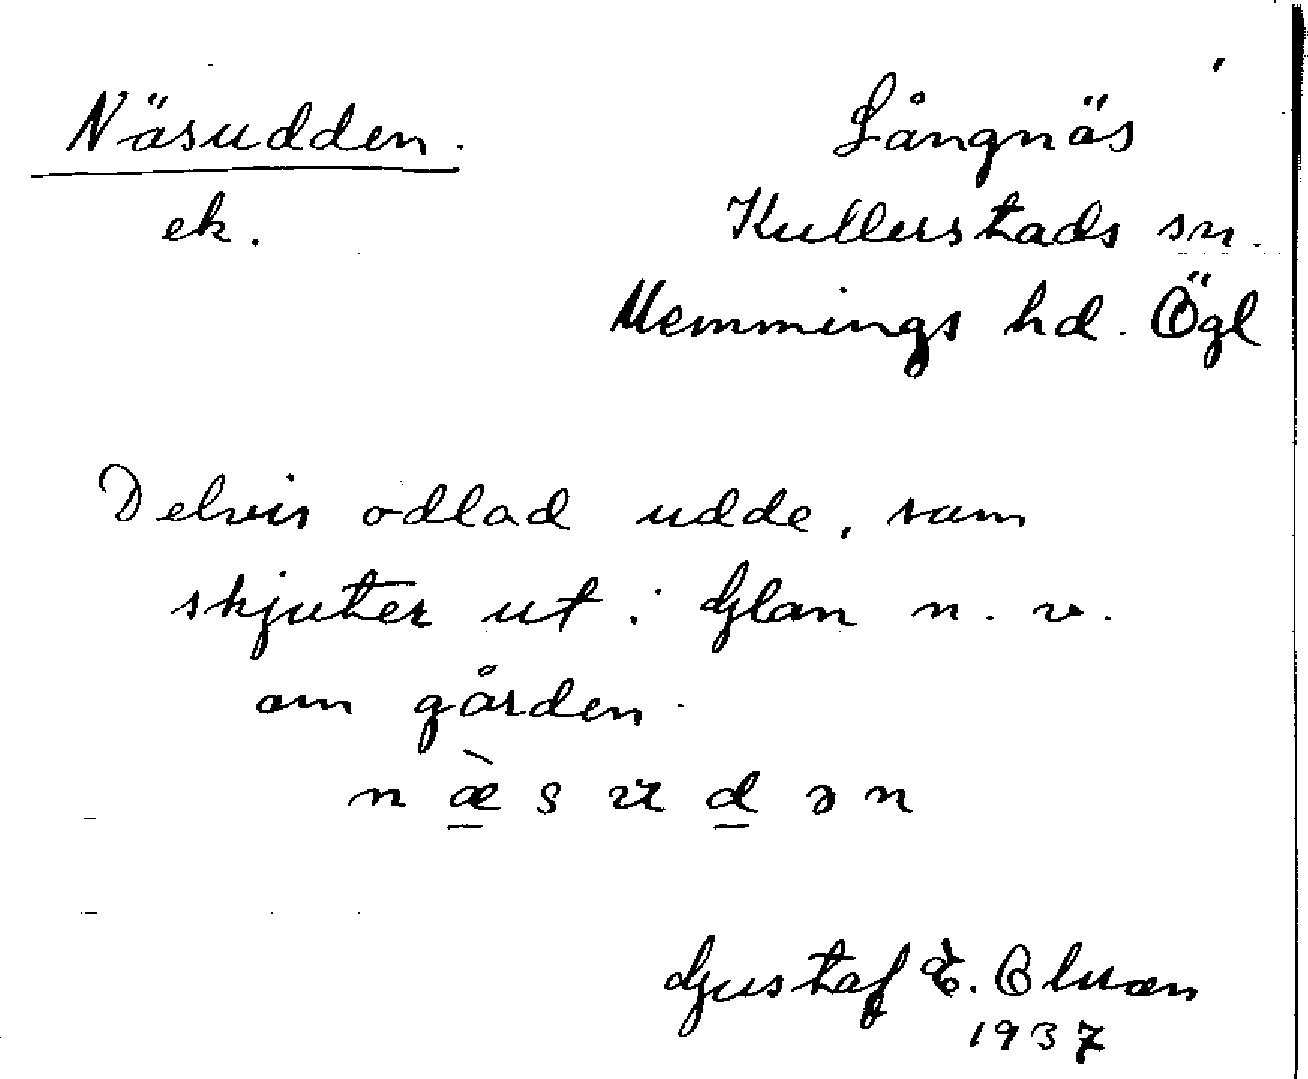 Näsudden.
Långnäs
ek.
Kullerstads sn.
Memmings hd. Ögl
Delvis odlad udde, som
skjuter ut i Glan n. v.
om gården.
næ̀sudən
Gustaf E. Olsson
1937